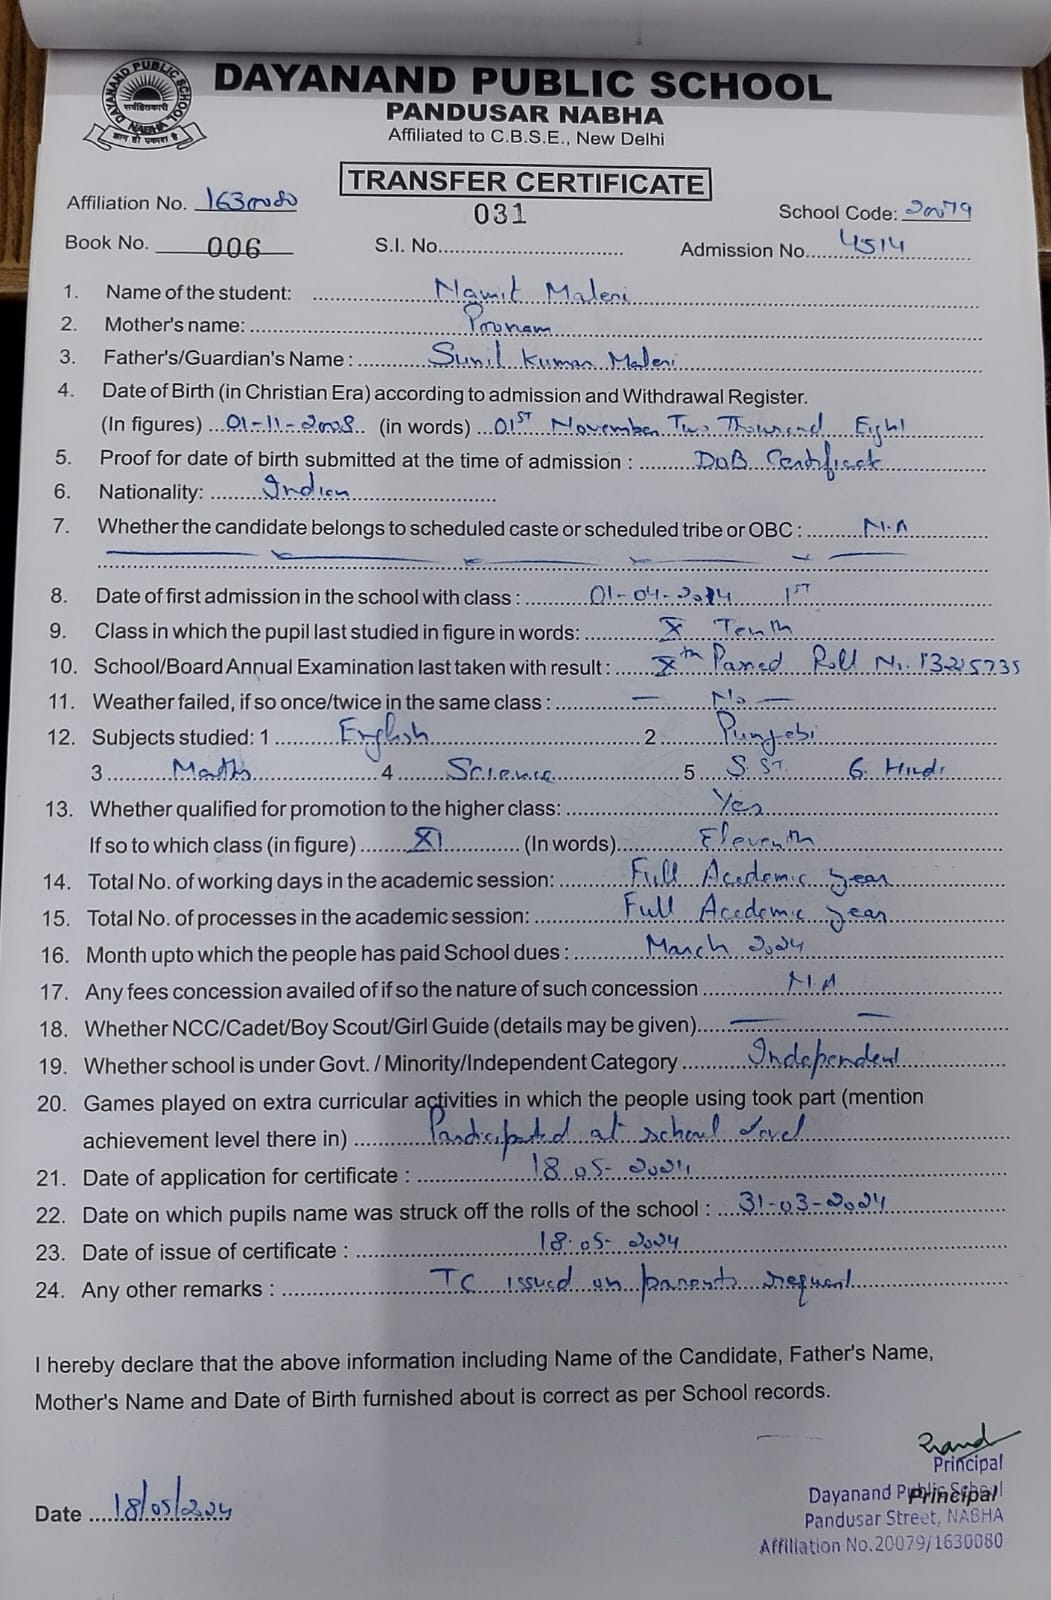 DAYANAND PUBLIC SCHOOL
DAYANAND PUBLIC SCHOOL
NABHA
PANDUSAR NABHA
Affiliated to C.B.S.E., New Delhi
TRANSFER CERTIFICATE
Affiliation No. 1630080
031
School Code: 20079
Book No. 006
S.I. No.
Admission No. 4514
1. Name of the student: Namit Maleri
2. Mother's name: Poonam
3. Father's/Guardian's Name : Sunil Kumar Maleri
4. Date of Birth (in Christian Era) according to admission and Withdrawal Register.
(In figures) 01-11-2008 (in words) 01ST November Two Thousand Eight
5. Proof for date of birth submitted at the time of admission : DoB Certificate
6. Nationality: Indian
7. Whether the candidate belongs to scheduled caste or scheduled tribe or OBC : N.A
8. Date of first admission in the school with class : 01-04-2014 1ST
9. Class in which the pupil last studied in figure in words: X Tenth
10. School/Board Annual Examination last taken with result : Xth Passed Roll No.
11. Weather failed, if so once/twice in the same class : — No —
12. Subjects studied: 1 English 2 Punjabi
3 Maths 4 Science 5 S.ST. 6. Hindi
13. Whether qualified for promotion to the higher class: Yes
If so to which class (in figure) XI (In words) Eleventh
14. Total No. of working days in the academic session: Full Academic year
15. Total No. of processes in the academic session: Full Academic year
16. Month upto which the people has paid School dues : March 2024
17. Any fees concession availed of if so the nature of such concession N.A
18. Whether NCC/Cadet/Boy Scout/Girl Guide (details may be given) — —
19. Whether school is under Govt. / Minority/Independent Category Independent
20. Games played on extra curricular activities in which the people using took part (mention
achievement level there in) Participated at school level
21. Date of application for certificate : 18.05-2024
22. Date on which pupils name was struck off the rolls of the school : 31-03-2024
23. Date of issue of certificate : 18.05-2024
24. Any other remarks : TC issued on parents request
I hereby declare that the above information including Name of the Candidate, Father's Name,
Mother's Name and Date of Birth furnished about is correct as per School records.
Principal
Dayanand Public School
Principal
Pandusar Street, NABHA
Affiliation No.20079/1630080
Date 18/05/2024